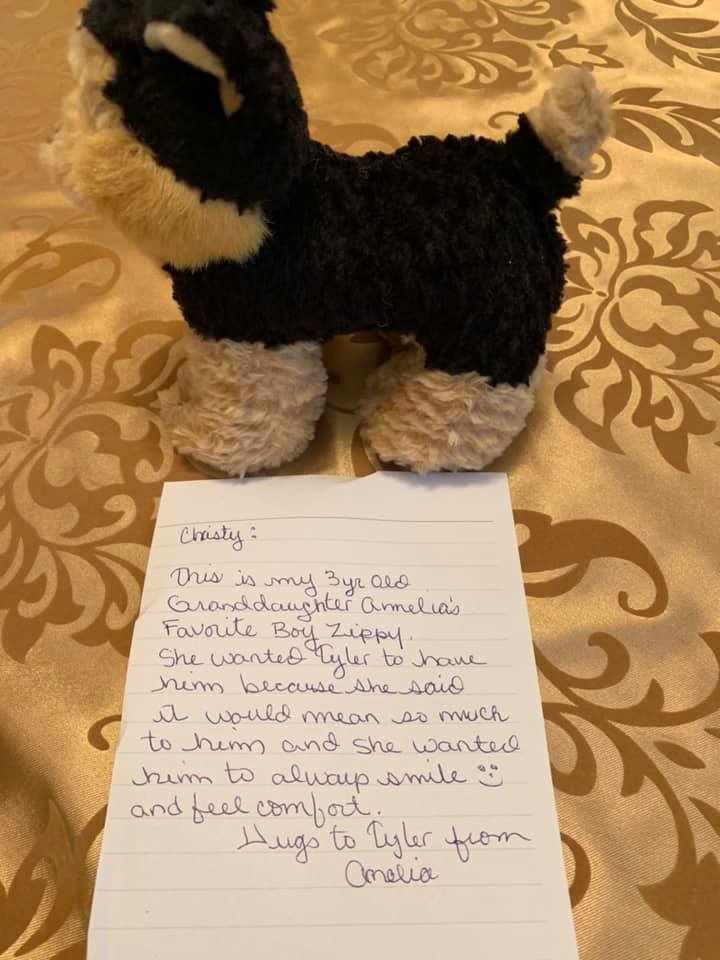 Christy:
This is my 3yr old
Granddaughter Amelia's
Favorite Boy Zippy.
She wanted Tyler to have
him because she said
it would mean so much
to him and she wanted
him to always smile
and feel comfort.
Hugs to Tyler from
Amelia